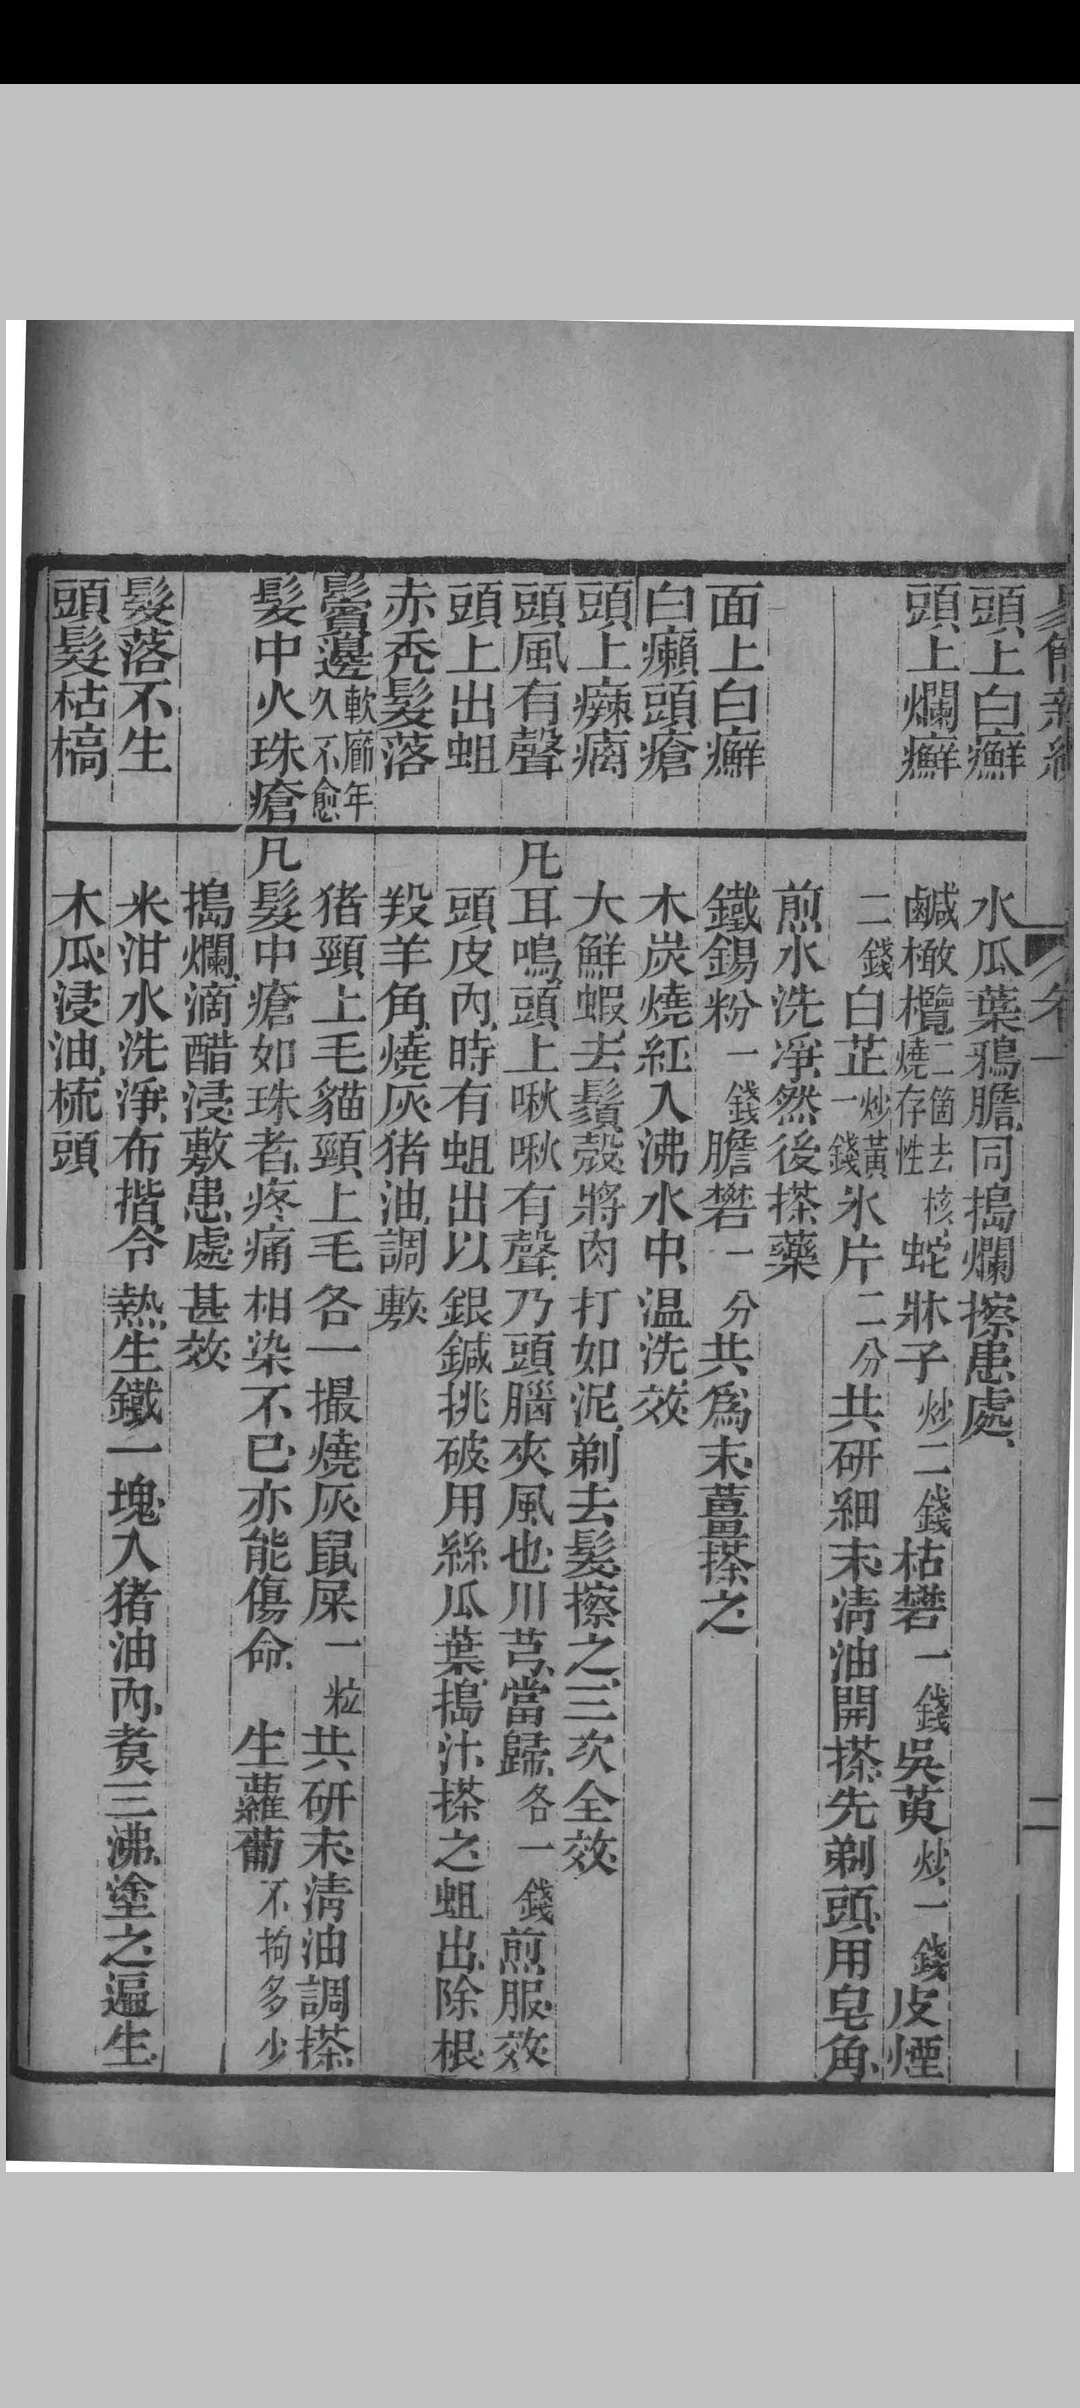 卷一 二
頭上白癬 水瓜葉鴉膽同搗爛擦患處
頭上爛癬 鹹橄欖二箇去核燒存性蛇牀子炒二錢枯礬一錢吳萸炒一錢皮煙
二錢白芷炒黃一錢氷片二分共研細末清油開搽先剃頭用皂角
煎水洗淨然後搽藥
面上白癬 鐵錫粉一錢膽礬一分共為末薑搽之
白癩頭瘡 木炭燒紅入沸水中温洗效
頭上痳癘 大鮮蝦去鬚殼將肉打如泥剃去髮擦之三次全效
頭風有聲 凡耳鳴頭上啾啾有聲乃頭腦夾風也川芎當歸各一錢煎服效
頭上出蛆 頭皮內時有蛆出以銀鍼挑破用絲瓜葉搗汁搽之蛆出除根
赤禿髮落 羖羊角燒灰猪油調敷
鬢邊軟癤年久不愈 猪頸上毛貓頸上毛各一撮燒灰鼠屎一粒共研末清油調搽
髮中火珠瘡 凡髮中瘡如珠者疼痛相染不已亦能傷命 生蘿蔔不拘多少
搗爛滴醋浸敷患處甚效
髮落不生 米泔水洗淨布揩令熱生鐵一塊入猪油內煑三沸塗之遍生
頭髮枯槁 木瓜浸油梳頭